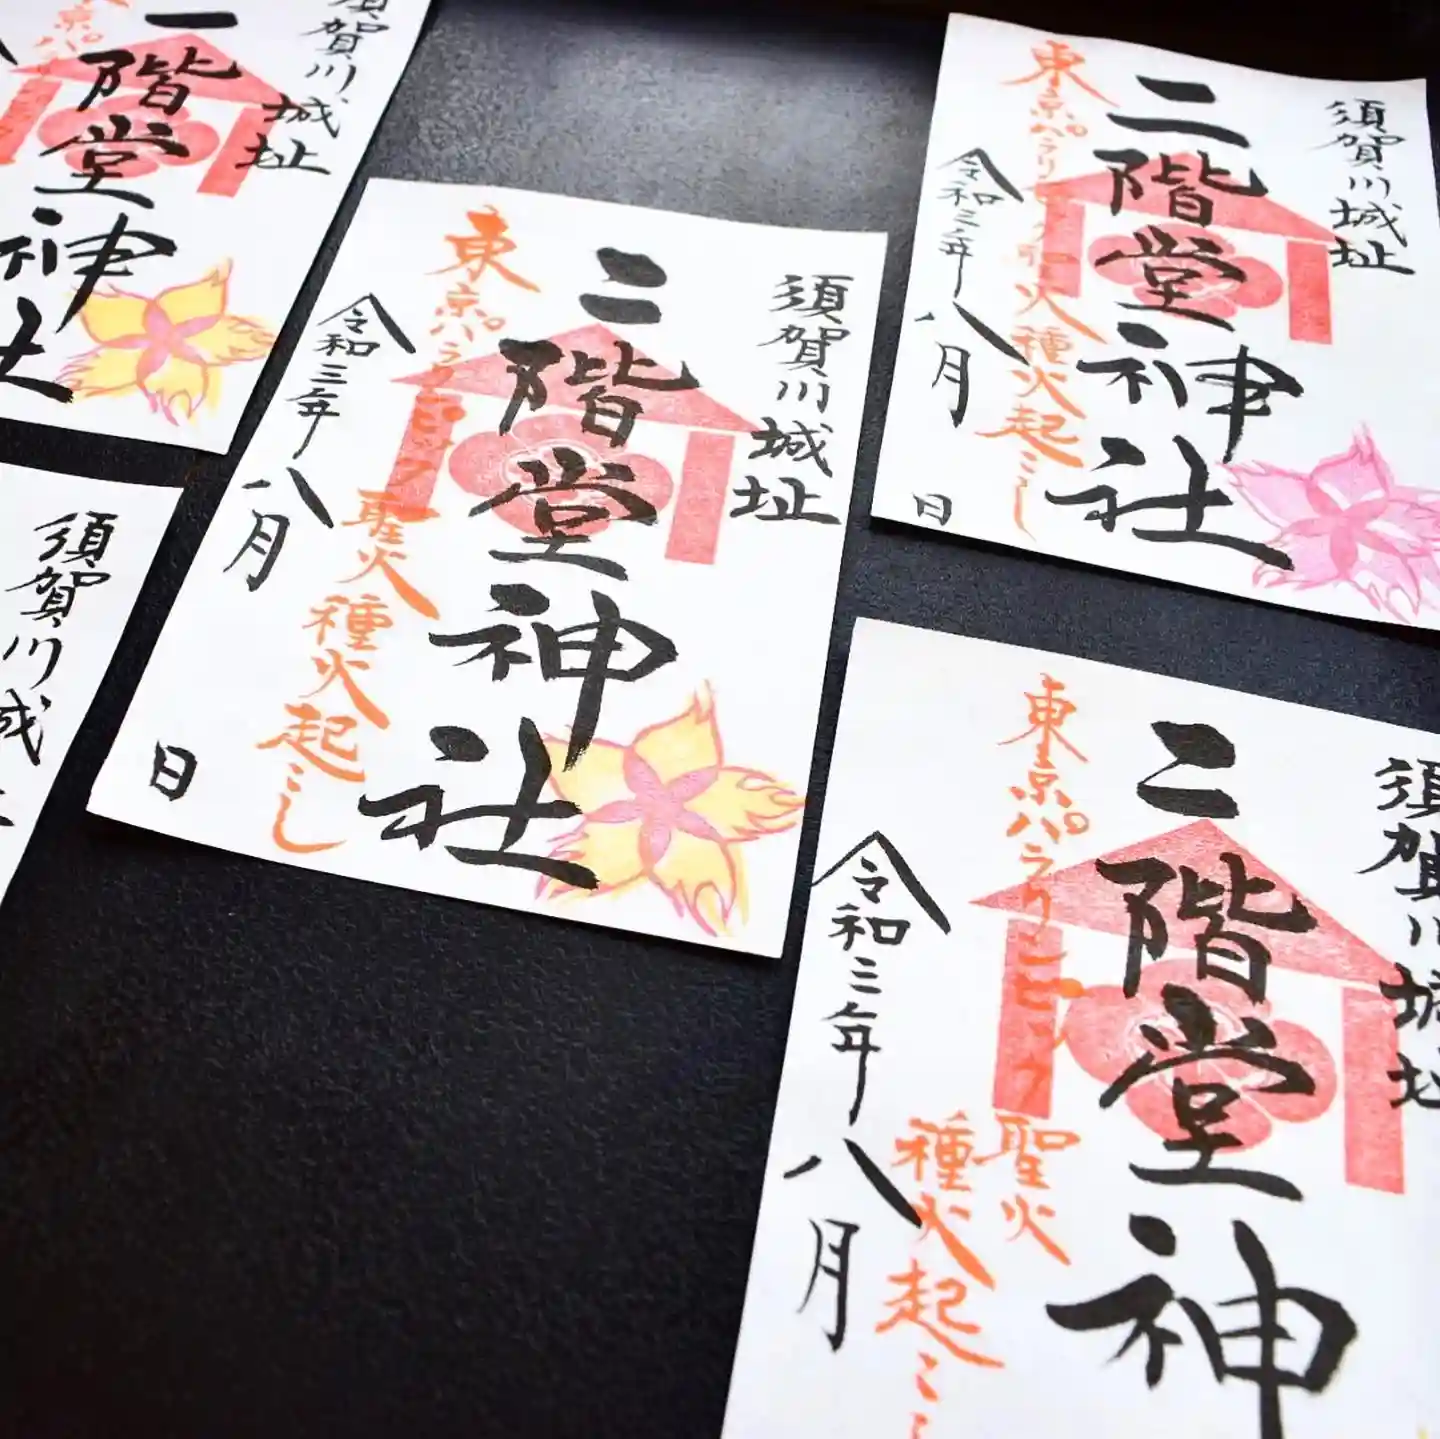 須賀川城址
二階堂神社
東京パラリンピック聖火種火起こし
令和三年八月
日
須賀川城址
二階堂神社
東京パラリンピック聖火種火起こし
令和三年八月
日
須賀川城址
二階堂神
東京パラリンピック聖火
種火起こし
令和三年八月
賀川城址
二階堂神社
須賀川城